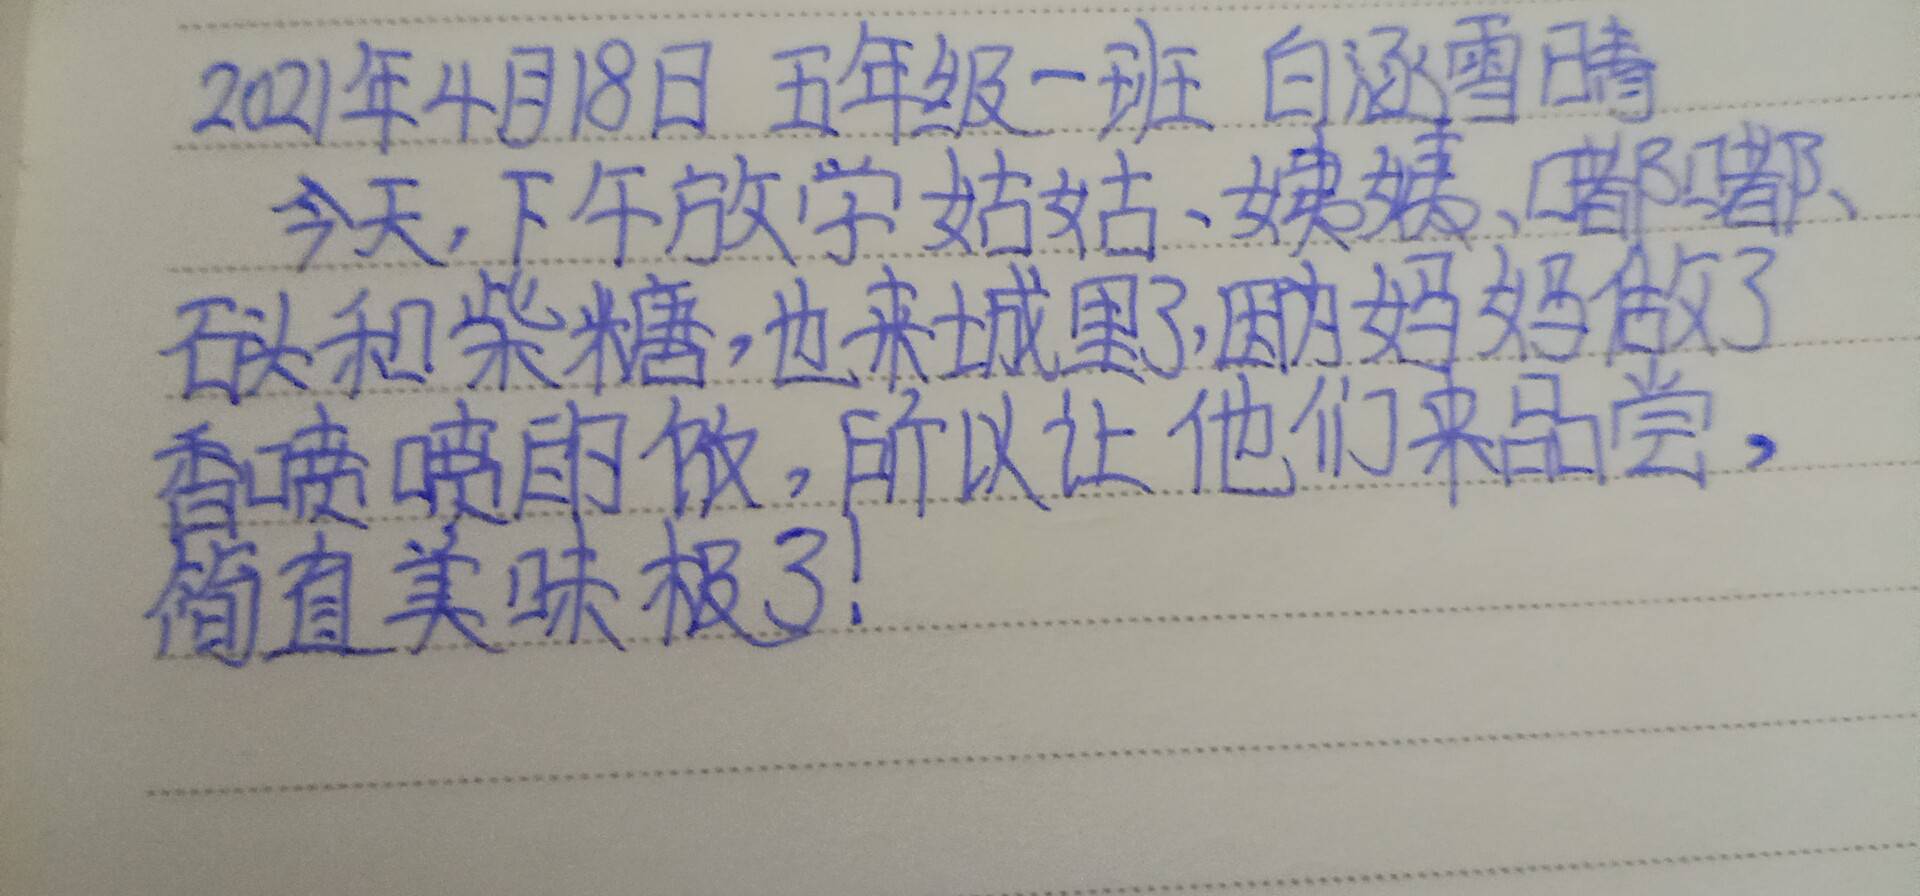 2021年4月18日 五年级一班 白涵雪晴
今天,下午放学姑姑、姨姨、嘟嘟、
石头和柴糖,也来城里了,因为妈妈做了
香喷喷的饭,所以让他们来品尝,
简直美味极了!